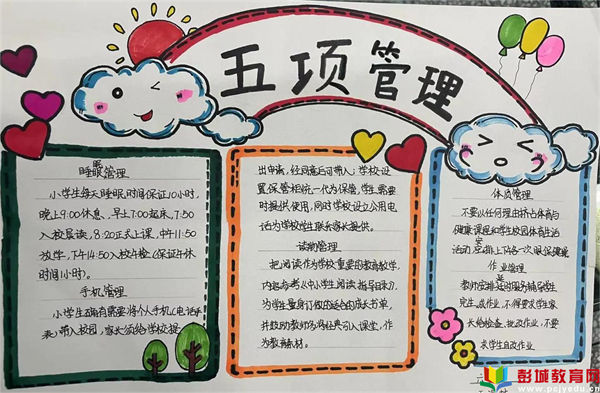 五项管理
睡眠管理
小学生每天睡眠时间保证10小时,
晚上9:00休息,早上7:00起床,7:50
入校晨读,8:20正式上课,中午11:50
放学,下午14:50入校午检(保证午休
时间1小时)。
手机管理
小学生确有需要将个人手机(电话手
表)带入校园,家长须给学校提
出申请,经同意后可带入;学校设
置保管柜统一代为保管,学生需要
时提供使用,同时学校设立公用电
话为学校学生联系家长提供。
读物管理
把阅读作为学校重要的教育教学
内容参考《中小学生阅读指导目录》,
为学生量身订做适合的成长书单,
并鼓励教师为将经典引入课堂,作
为教育素材。
体质管理
不要以任何理由挤占体育与
健康课程和学生校园体育活
活动,安排上下午各一次眼保健操
作业管理
教师安排延时服务辅导学生
完成作业,不得要求学生家
长给检查、批改作业,不要
求学生自改作业
彭城教育网
www.pcjyedu.cn